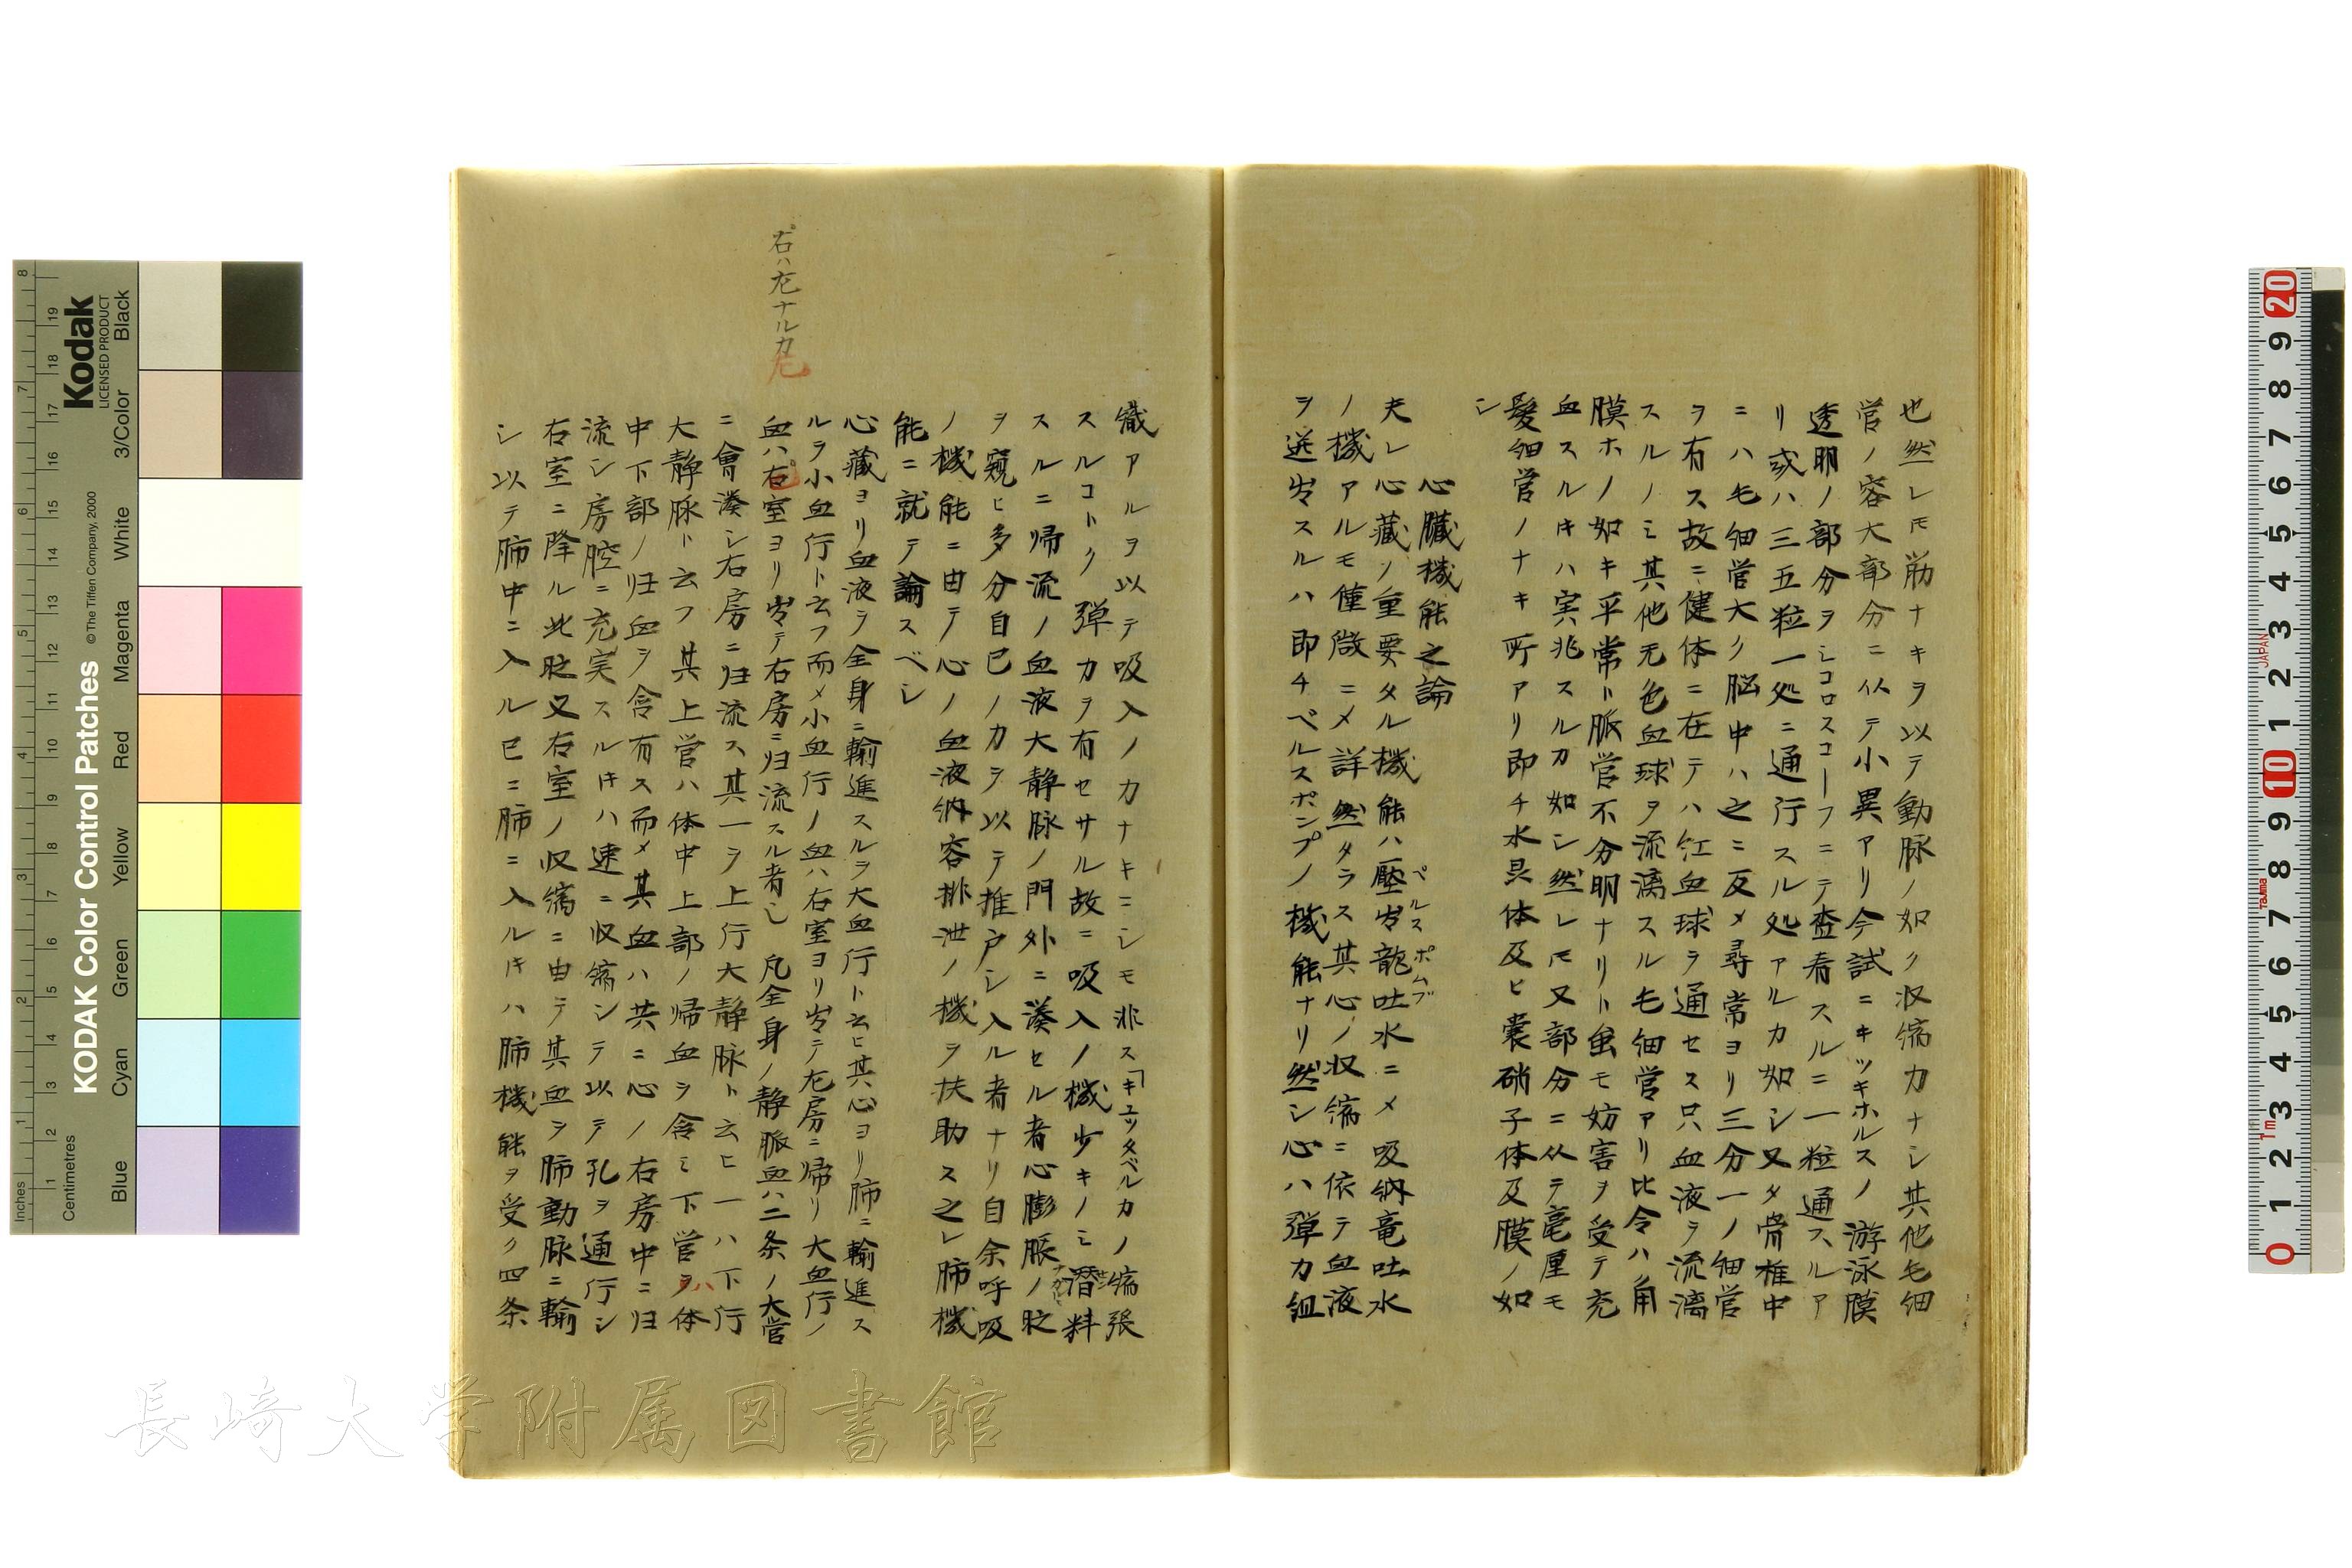 也然レ𪜈筋ナキヲ以テ動脉ノ如ク収縮力ナシ其他毛細
管ノ容大部分ニ从テ小異アリ今試ニキツキホルスノ游泳膜
透明ノ部分ヲシコロスコーフニテ査看スルニ一粒通スルア
リ或ハ三五粒一処ニ通行スル処アルカ如シ又タ脊椎中
ニハ毛細管大ク脳中ハ之ニ反メ尋常ヨリ三分一ノ細管
ヲ有ス故ニ健体ニ在テハ紅血球ヲ通セス只血液ヲ流漓
スルノミ其他无色血球ヲ流漓スル毛細管アリ比令ハ角
膜ホノ如キ平常ト脈管不分明ナリト虽モ妨害ヲ受テ充
血スルキハ実兆スルカ如シ然レ𪜈又部分ニ从テ毫厘モ
髮細管ノナキ所アリ即チ水晶体及ヒ嚢硝子体及膜ノ如
シ
心臓機能之論
夫レ心藏ノ重要タル機能ハ壓出龍吐水ニメ吸納竜吐水
ペルスポムプ
ノ機アルモ僅微ニメ詳然タラス其心ノ収縮ニ依テ血液
ヲ送出スルハ即チペルスポンプノ機能ナリ然シ心ハ弾力組
織アルヲ以テ吸入ノ力ナキニシモ非ス「キユツタペルカノ縮張
スルコトク弾力ヲ有セサル故ニ吸入ノ機少キノミ潜料
スルニ帰流ノ血液大静脉ノ門外ニ湊セル者心膨脹ノ時
ヲ窺ヒ多分自己ノ力ヲ以テ推戸シ入ル者ナリ自余呼吸
ノ機能ニ由テ心ノ血液納容排泄ノ機ヲ扶助ス之レ肺機
能ニ就テ論スベシ
心藏ヨリ血液ヲ全身ニ輸進スルヲ大血行ト云ヒ其心ヨリ肺ニ輸進ス
ルヲ小血行ト云フ而メ小血行ノ血ハ右室ヨリ出テ左房ニ帰リ大血行ノ
右ハ左ナルカ
左
血ハ右室ヨリ出テ右房ニ归流スル者也凡全身ノ静脈血ハ二条ノ大管
ニ會湊シ右房ニ归流ス其一ヲ上行大静脉ト云ヒ一ハ下行
大静脉ト云フ其上管ハ体中上部ノ帰血ヲ含ミ下管ハ体
中下部ノ归血ヲ含有ス而メ其血ハ共ニ心ノ右房中ニ归
流シ房腔ニ充実スルキハ速ニ収縮シテ以テ孔ヲ通行シ
右室ニ降ル此時又右室ノ収縮ニ由テ其血ヲ肺動脉ニ輸
シ以テ肺中ニ入ル已ニ肺ニ入ルキハ肺機能ヲ受ク四条
長崎大学附属図書館
KODAK Color Control Patches
© The Tiffen Company, 2000
Kodak
LICENSED PRODUCT
Inches
Centimetres
Blue Cyan Green Yellow Red Magenta White 3/Color Black
JAPAN
Tajima